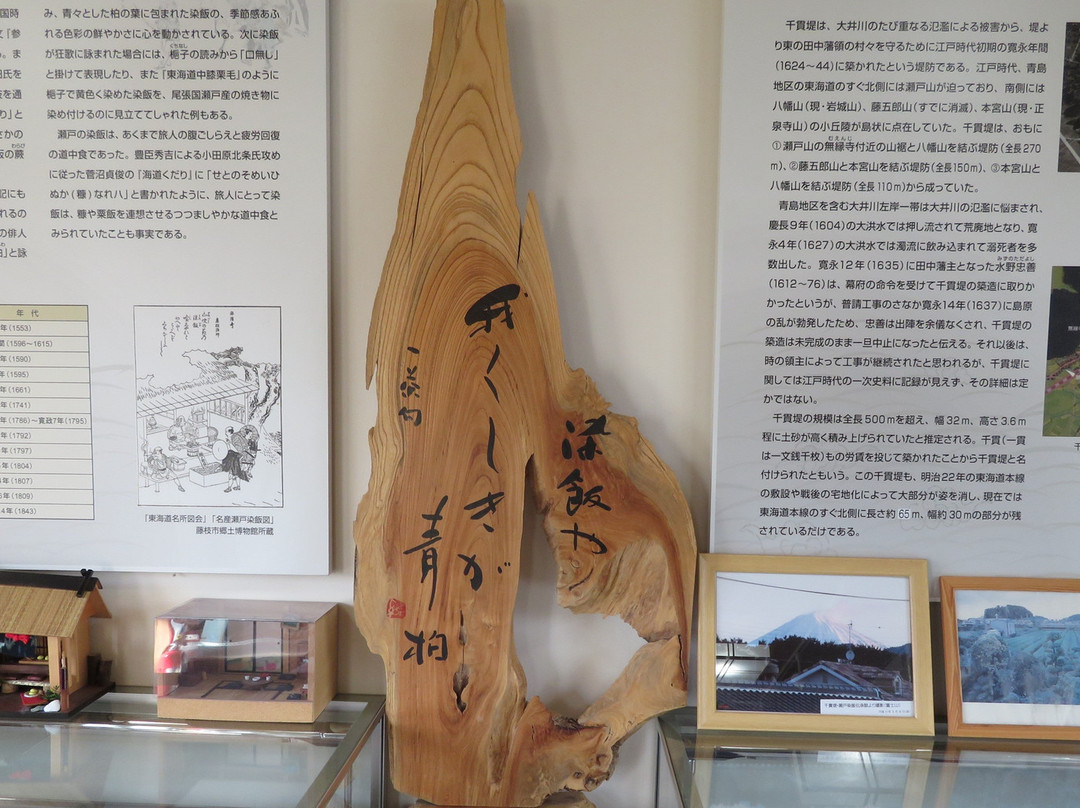 み、青々とした柏の葉に包まれた染飯の、季節感あふ
れる色彩の鮮やかさに心を動かされている。次に染飯
が狂歌に詠まれた場合には、梔子の読みから「口無し」
と掛けて表現したり、また「東海道中膝栗毛」のように
梔子で黄色く染めた染飯を、尾張国瀬戸産の焼き物に
染め付けるのに見立ててしゃれた例もある。
瀬戸の染飯は、あくまで旅人の腹ごしらえと疲労回復
の道中食であった。豊臣秀吉による小田原北条氏攻め
に従った菅沼貞俊の「海道くだり」に「せとのそめいひ
ぬか(糠)なれハ」と書かれたように、旅人にとって染
飯は、糠や粟飯を連想させるつつましやかな道中食と
みられていたことも事実である。
年代
年(1553)
(1596〜1615)
年(1590)
年(1595)
年(1661)
年(1741)
年(1786)〜寛政7年(1795)
年(1792)
年(1797)
年(1804)
年(1807)
年(1809)
4年(1843)
「東海道名所図会」「名産瀬戸染飯図」
藤枝市郷土博物館所蔵
染飯や
我々しきが
青柏
一茶句
千貫堤は、大井川のたび重なる氾濫による被害から、堤よ
り東の田中藩領の村々を守るために江戸時代初期の寛永年間
(1624〜44)に築かれたという堤防である。江戸時代、青島
地区の東海道のすぐ北側には瀬戸山が迫っており、南側には
八幡山(現・岩城山)、藤五郎山(すでに消滅)、本宮山(現・正
泉寺山)の小丘陵が島状に点在していた。千貫堤は、おもに
①瀬戸山の無縁寺付近の山裾と八幡山を結ぶ堤防(全長270
m)、②藤五郎山と本宮山を結ぶ堤防(全長150m)、③本宮山と
八幡山を結ぶ堤防(全長110m)から成っていた。
青島地区を含む大井川左岸一帯は大井川の氾濫に悩まされ、
慶長9年(1604)の大洪水では押し流されて荒廃地となり、寛
永4年(1627)の大洪水では濁流に飲み込まれて溺死者を多
数出した。寛永12年(1635)に田中藩主となった水野忠善
(1612〜76)は、幕府の命令を受けて千貫堤の築造に取りか
かったというが、普請工事のさなか寛永14年(1637)に島原
の乱が勃発したため、忠善は出陣を余儀なくされ、千貫堤の
築造は未完成のまま一旦中止になったと伝える。それ以後は、
時の領主によって工事が継続されたと思われるが、千貫堤に
関しては江戸時代の一次史料に記録が見えず、その詳細は定
かではない。
千貫堤の規模は全長500mを超え、幅32m、高さ3.6m
程に土砂が高く積み上げられていたと推定される。千貫(一貫
は一文銭千枚)もの労賃を投じて築かれたことから千貫堤と名
付けられたともいう。この千貫堤も、明治22年の東海道本線
の敷設や戦後の宅地化によって大部分が姿を消し、現在では
東海道本線のすぐ北側に長さ約65m、幅約30mの部分が残
されているだけである。